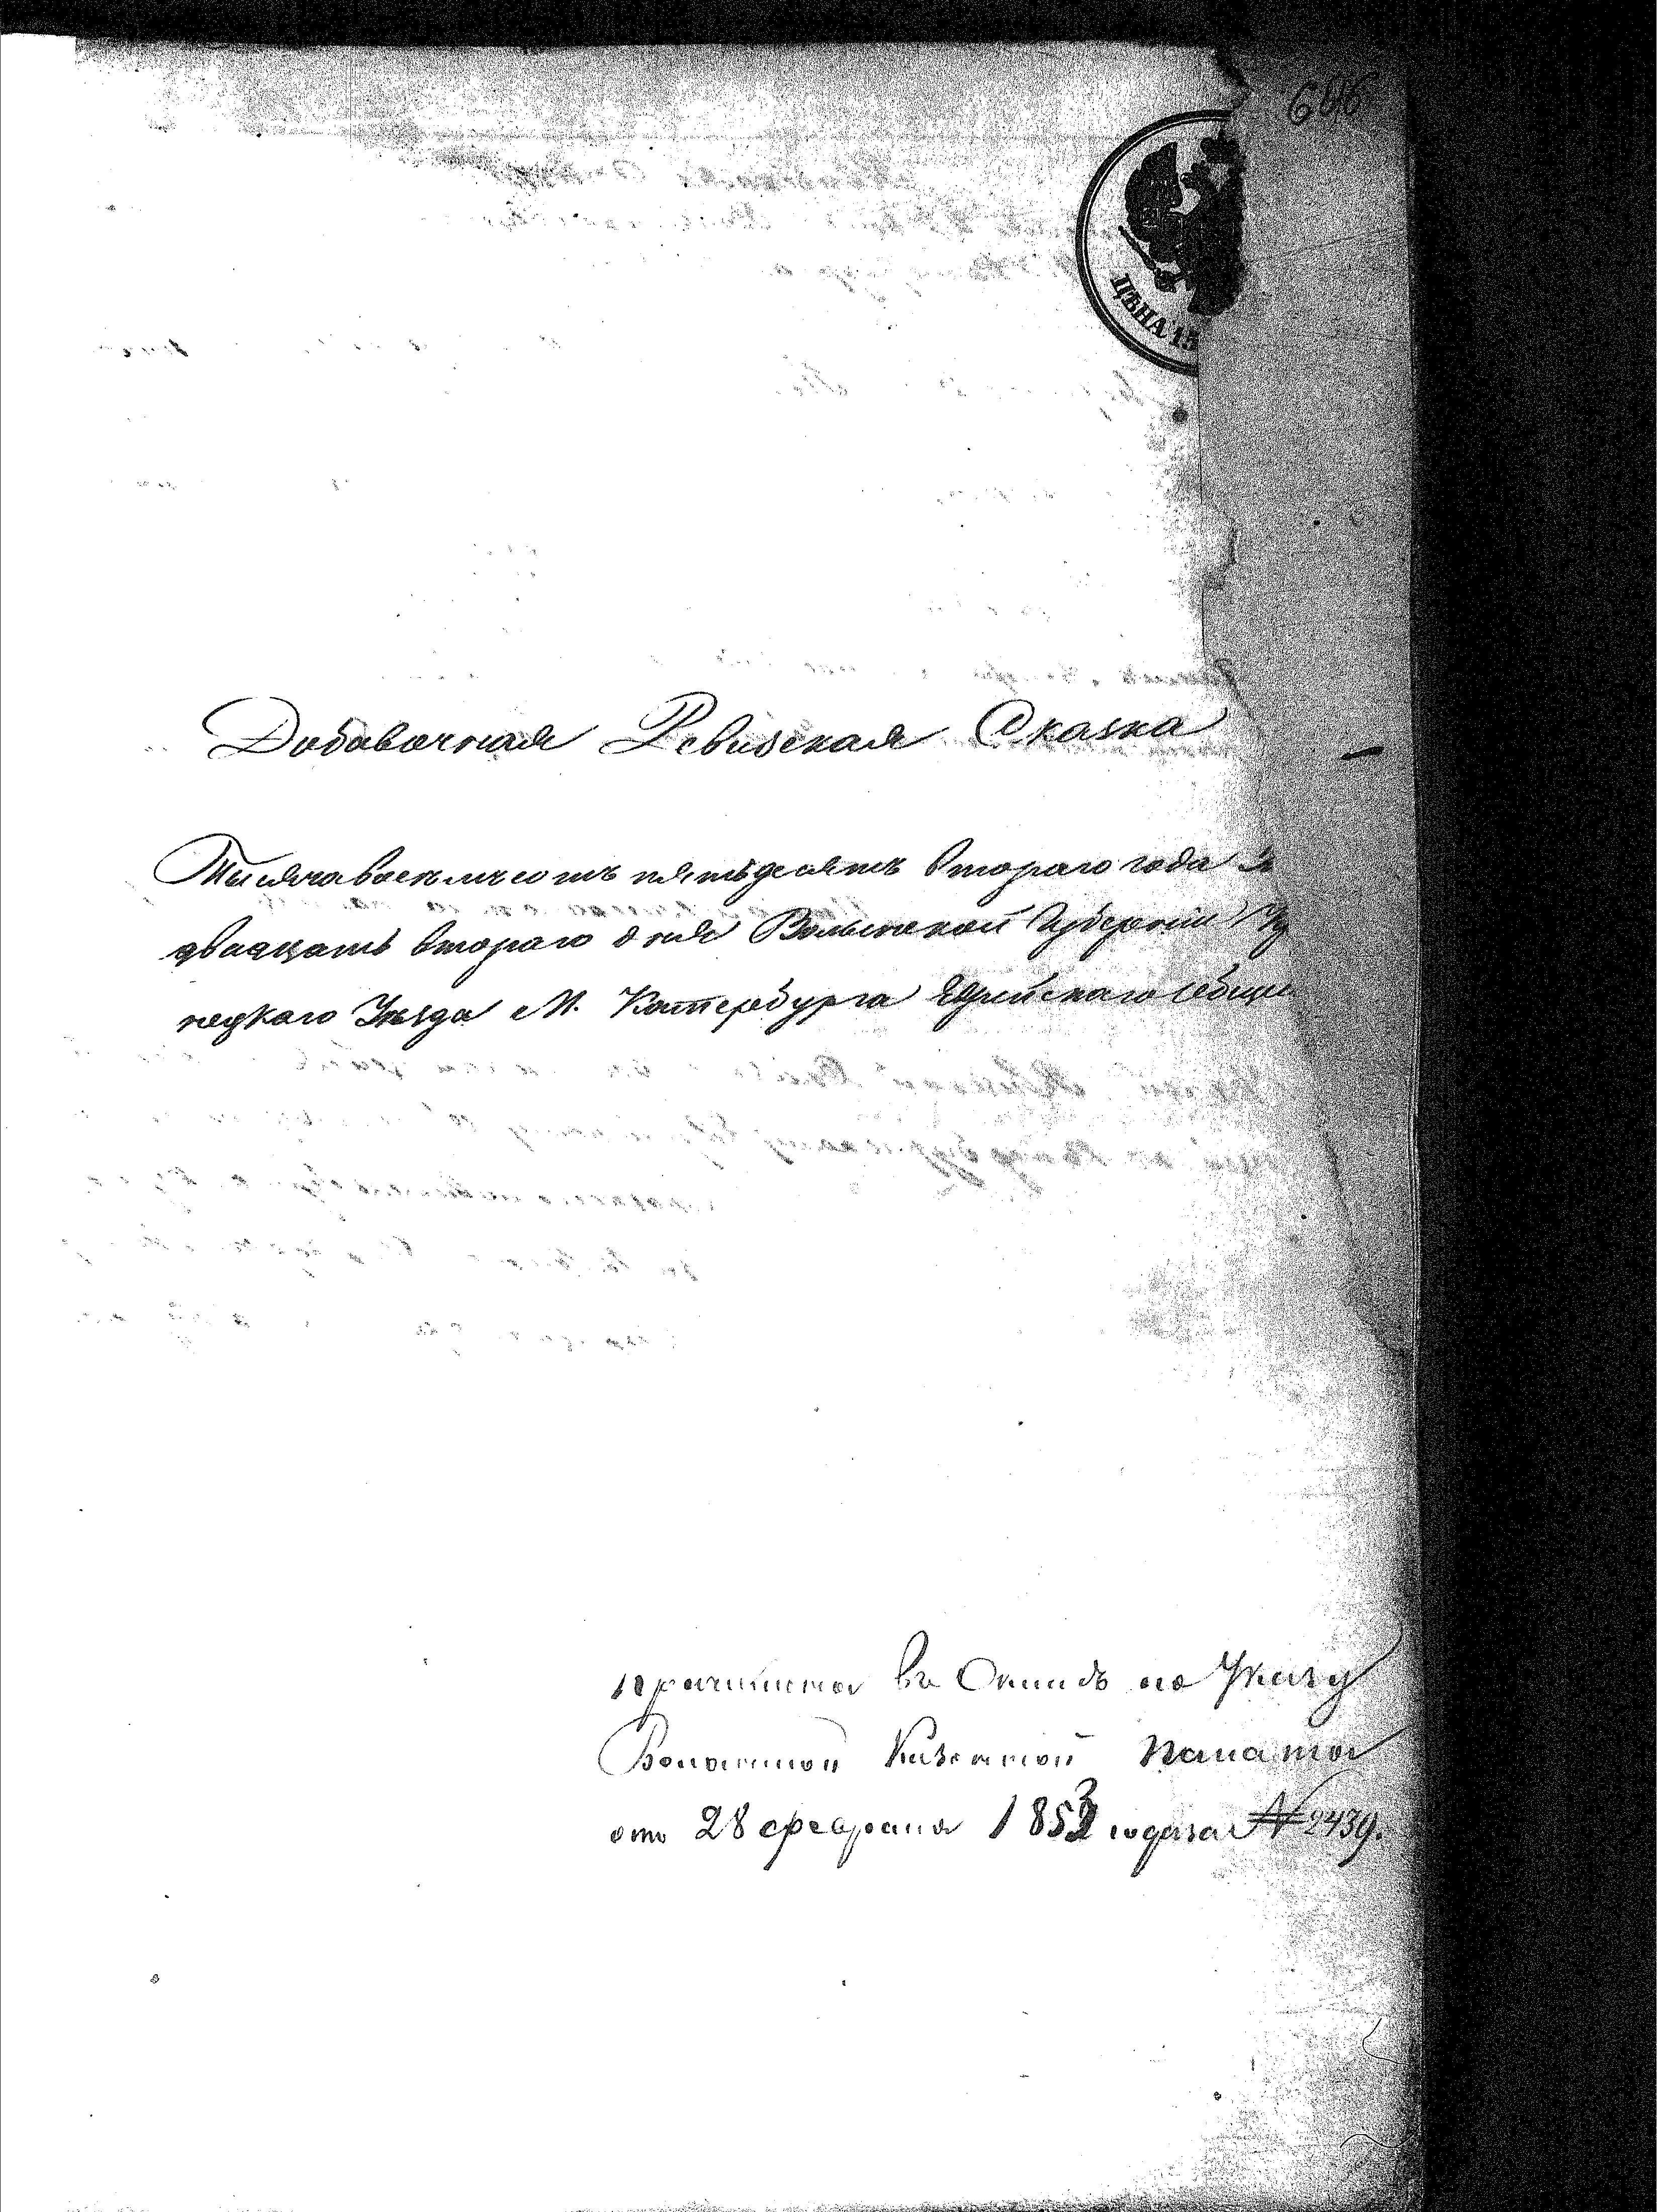 606
ЦѢНА 15
Добавочная Ревизская Сказка
Тысяча восемьсотъ пятьдесятъ втораго года
двадцать втораго дня Волынской Губерніи
нецкаго Уѣзда М. Катербурга Еврейскаго Общ
принята въ Окладъ по Указу
Волынской Казенной Палаты
отъ 28 февраля 1853 года за № 2439.